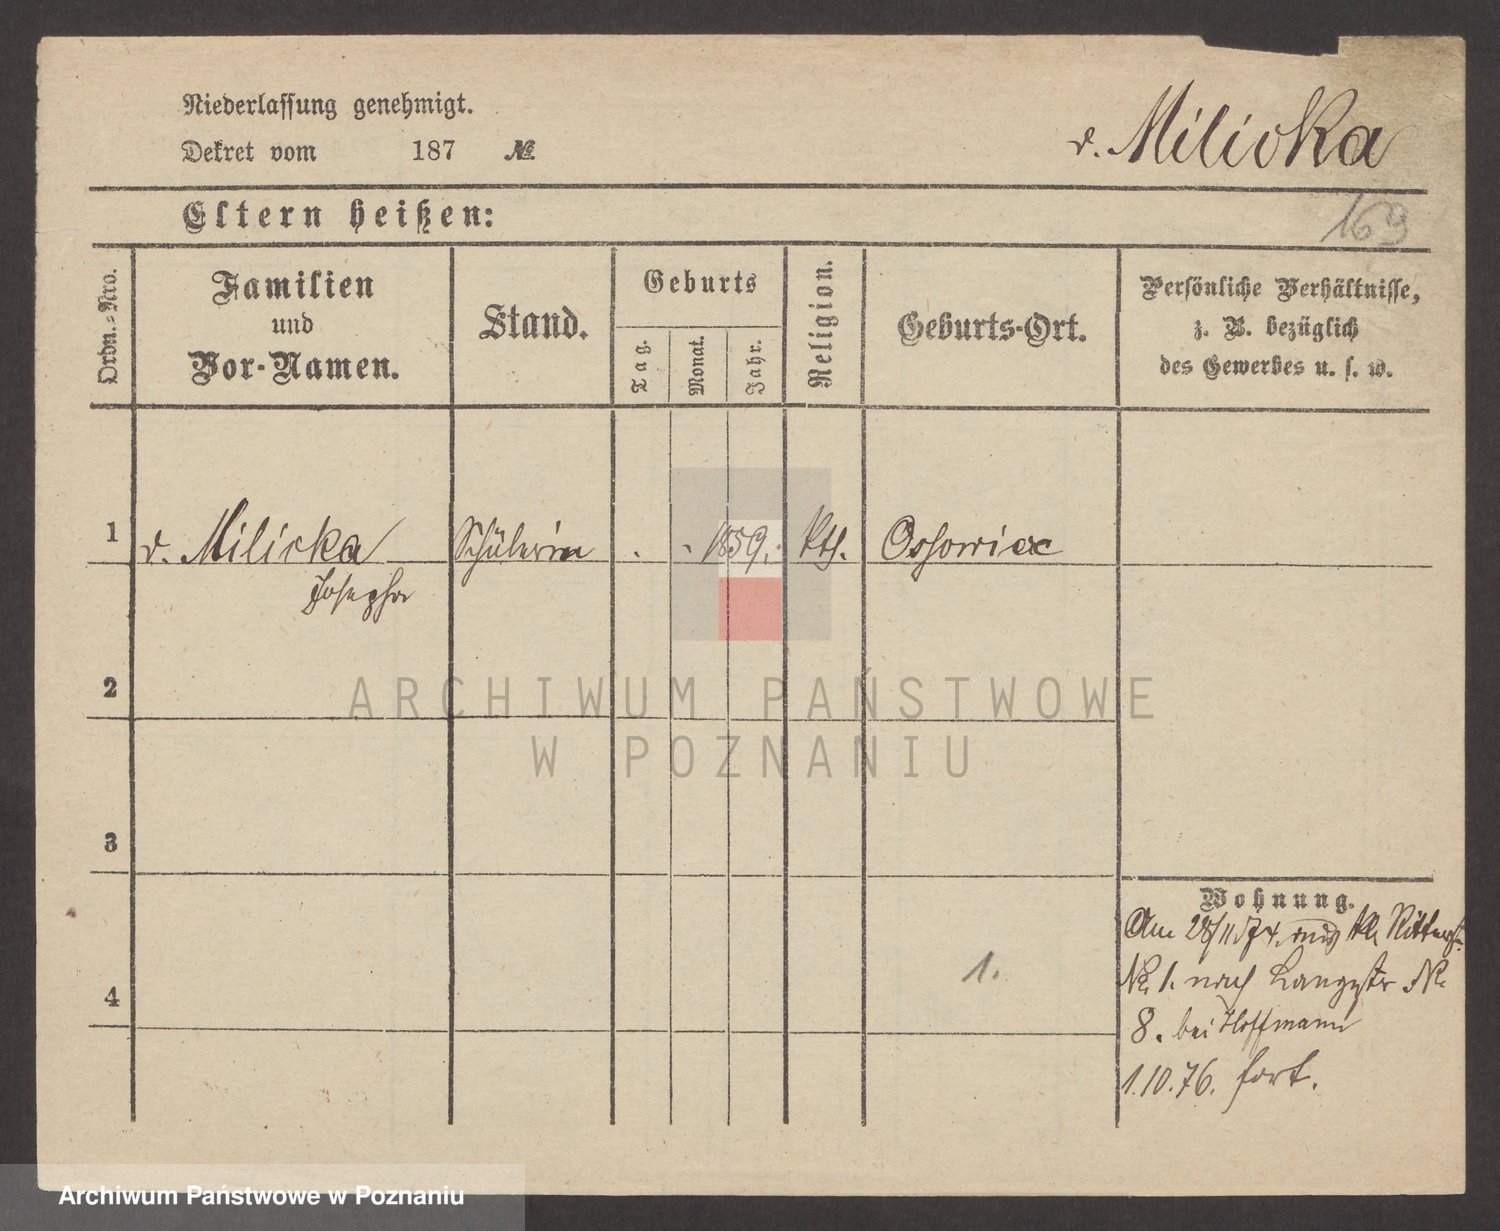 Niederlassung genehmigt.
Dekret vom 187 №
v. Milicka
169
Eltern heißen:
Ordn.-Nro.
Familien
und
Vor-Namen.
Stand.
Geburts
Tag.
Monat.
Jahr.
Religion.
Geburts-Ort.
Persönliche Verhältnisse,
z. B. bezüglich
des Gewerbes u. s. w.
1 v. Milicka Schülerin . - 1859. Kth. Ossowiec
Josepha
2
ARCHIWUM PAŃSTWOWE
W POZNANIU
3
Wohnung.
Am 28/11 74. aus kl. Ritterstr.
4
1.
№ 1. nach Langestr №
8. bei Hoffmann
1.10.76. fort.
Archiwum Państwowe w Poznaniu